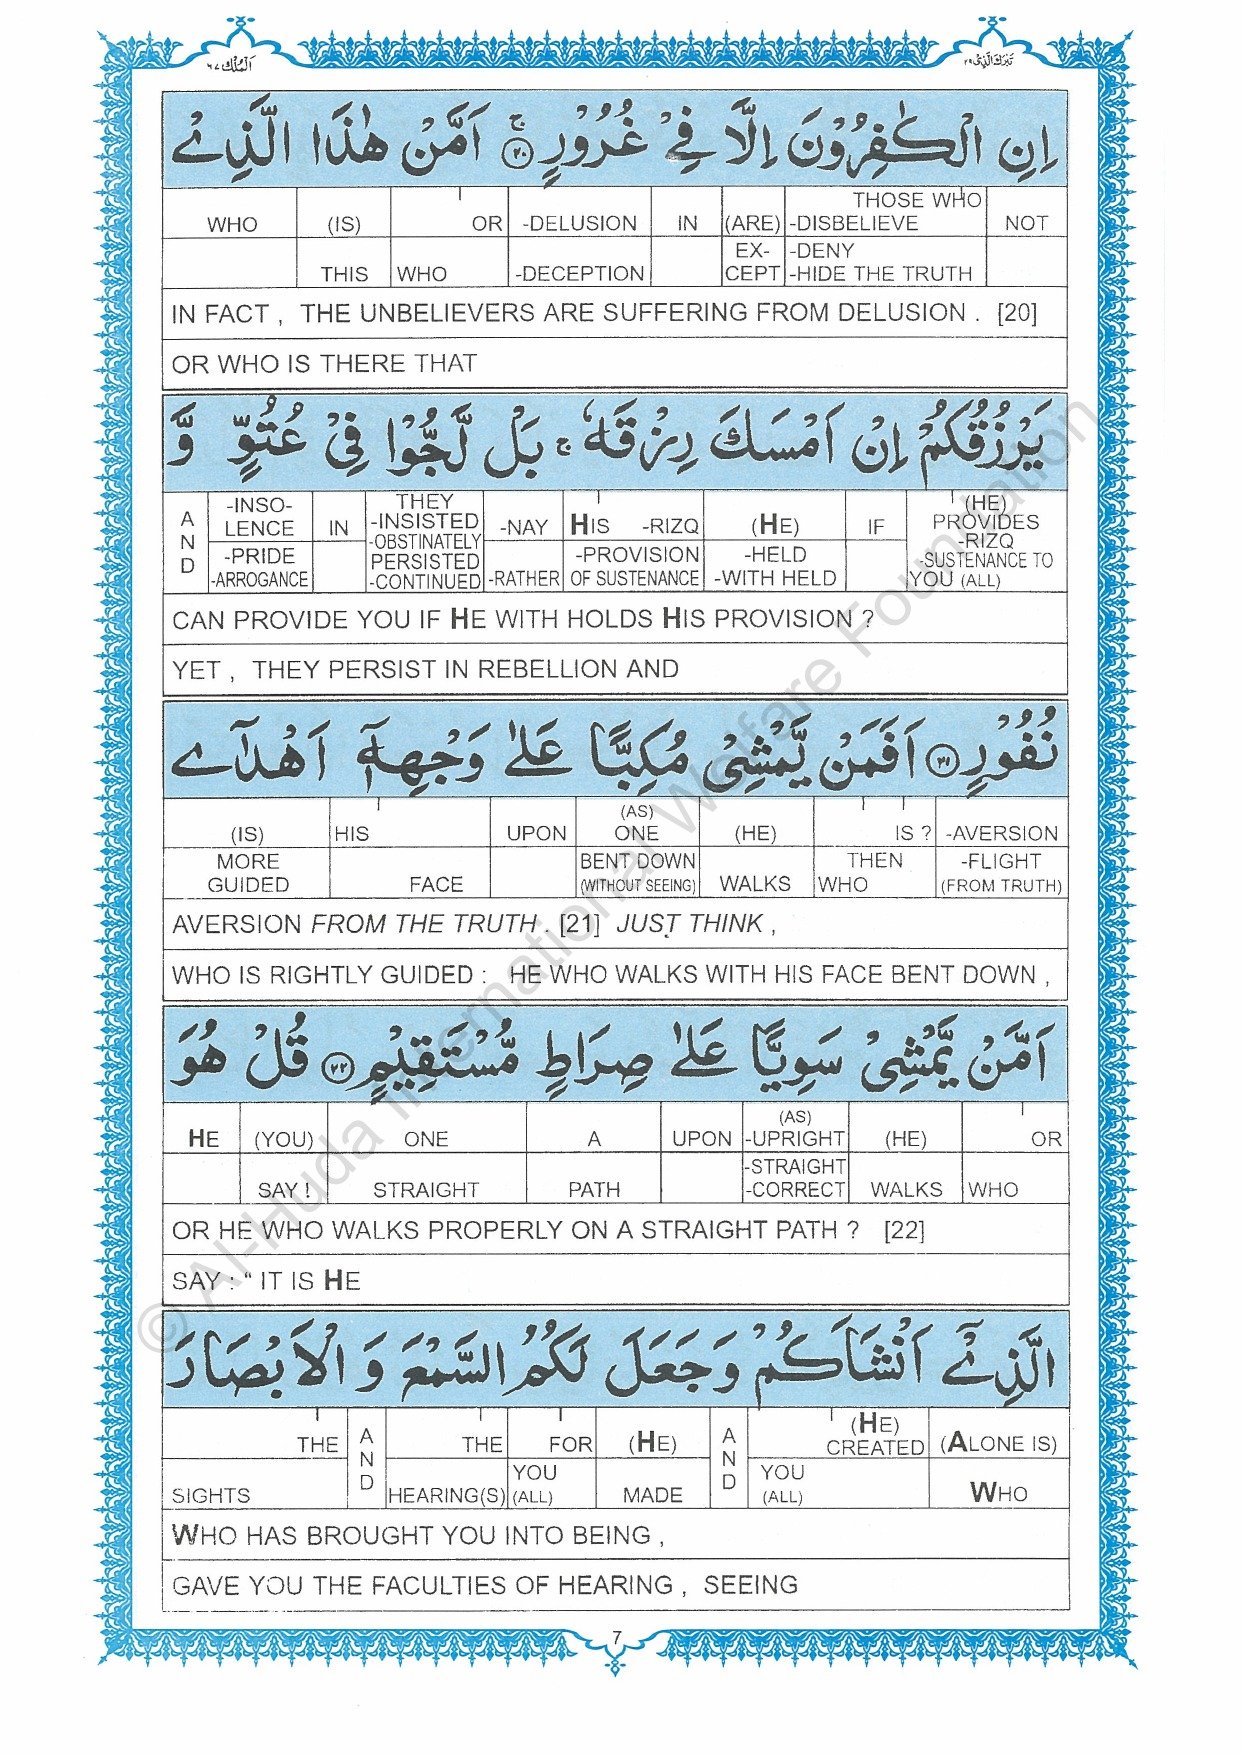 اَلْمُلْك ٦٧
تَبٰرَكَ الَّذِیْ ٢٩
اِنِ الْكٰفِرُوْنَ اِلَّا فِیْ غُرُوْرٍ ۚ ﴿٢٠﴾ اَمَّنْ هٰذَا الَّذِیْ
WHO (IS) OR -DELUSION IN (ARE) THOSE WHO -DISBELIEVE NOT
THIS WHO -DECEPTION EX- CEPT -DENY -HIDE THE TRUTH
IN FACT , THE UNBELIEVERS ARE SUFFERING FROM DELUSION . [20]
OR WHO IS THERE THAT
یَرْزُقُكُمْ اِنْ اَمْسَكَ رِزْقَهٗ ۚ بَلْ لَّجُّوْا فِیْ عُتُوٍّ وَّ
AND -INSO- LENCE IN THEY -INSISTED -OBSTINATELY -NAY HIS -RIZQ (HE) IF (HE) PROVIDES -RIZQ
-PRIDE -ARROGANCE PERSISTED -CONTINUED -RATHER -PROVISION OF SUSTENANCE -HELD -WITH HELD -SUSTENANCE TO YOU (ALL)
CAN PROVIDE YOU IF HE WITH HOLDS HIS PROVISION ?
YET , THEY PERSIST IN REBELLION AND
نُفُوْرٍ ﴿٢١﴾ اَفَمَنْ یَّمْشِیْ مُكِبًّا عَلٰی وَجْهِهٖۤ اَهْدٰۤی
(IS) HIS UPON (AS) ONE (HE) IS ? -AVERSION
MORE GUIDED FACE BENT DOWN (WITHOUT SEEING) WALKS THEN WHO -FLIGHT (FROM TRUTH)
AVERSION FROM THE TRUTH . [21] JUST THINK ,
WHO IS RIGHTLY GUIDED : HE WHO WALKS WITH HIS FACE BENT DOWN ,
اَمَّنْ یَّمْشِیْ سَوِیًّا عَلٰی صِرَاطٍ مُّسْتَقِیْمٍ ﴿٢٢﴾ قُلْ هُوَ
HE (YOU) ONE A UPON (AS) -UPRIGHT (HE) OR
SAY ! STRAIGHT PATH -STRAIGHT -CORRECT WALKS WHO
OR HE WHO WALKS PROPERLY ON A STRAIGHT PATH ? [22]
SAY : “ IT IS HE
الَّذِیْۤ اَنْشَاَكُمْ وَجَعَلَ لَكُمُ السَّمْعَ وَ الْاَبْصَارَ
THE AND THE FOR (HE) AND (HE) CREATED (ALONE IS)
SIGHTS HEARING(S) YOU (ALL) MADE YOU (ALL) WHO
WHO HAS BROUGHT YOU INTO BEING ,
GAVE YOU THE FACULTIES OF HEARING , SEEING
7
© Al-Huda International Welfare Foundation